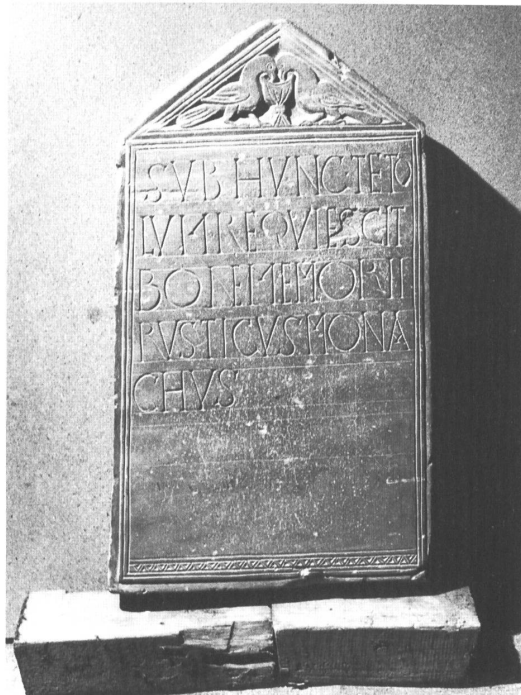 SVB HVNC TETO
LVM REQVIESCIT
BONE MEMORII
RVSTICVS MONA
CHVS